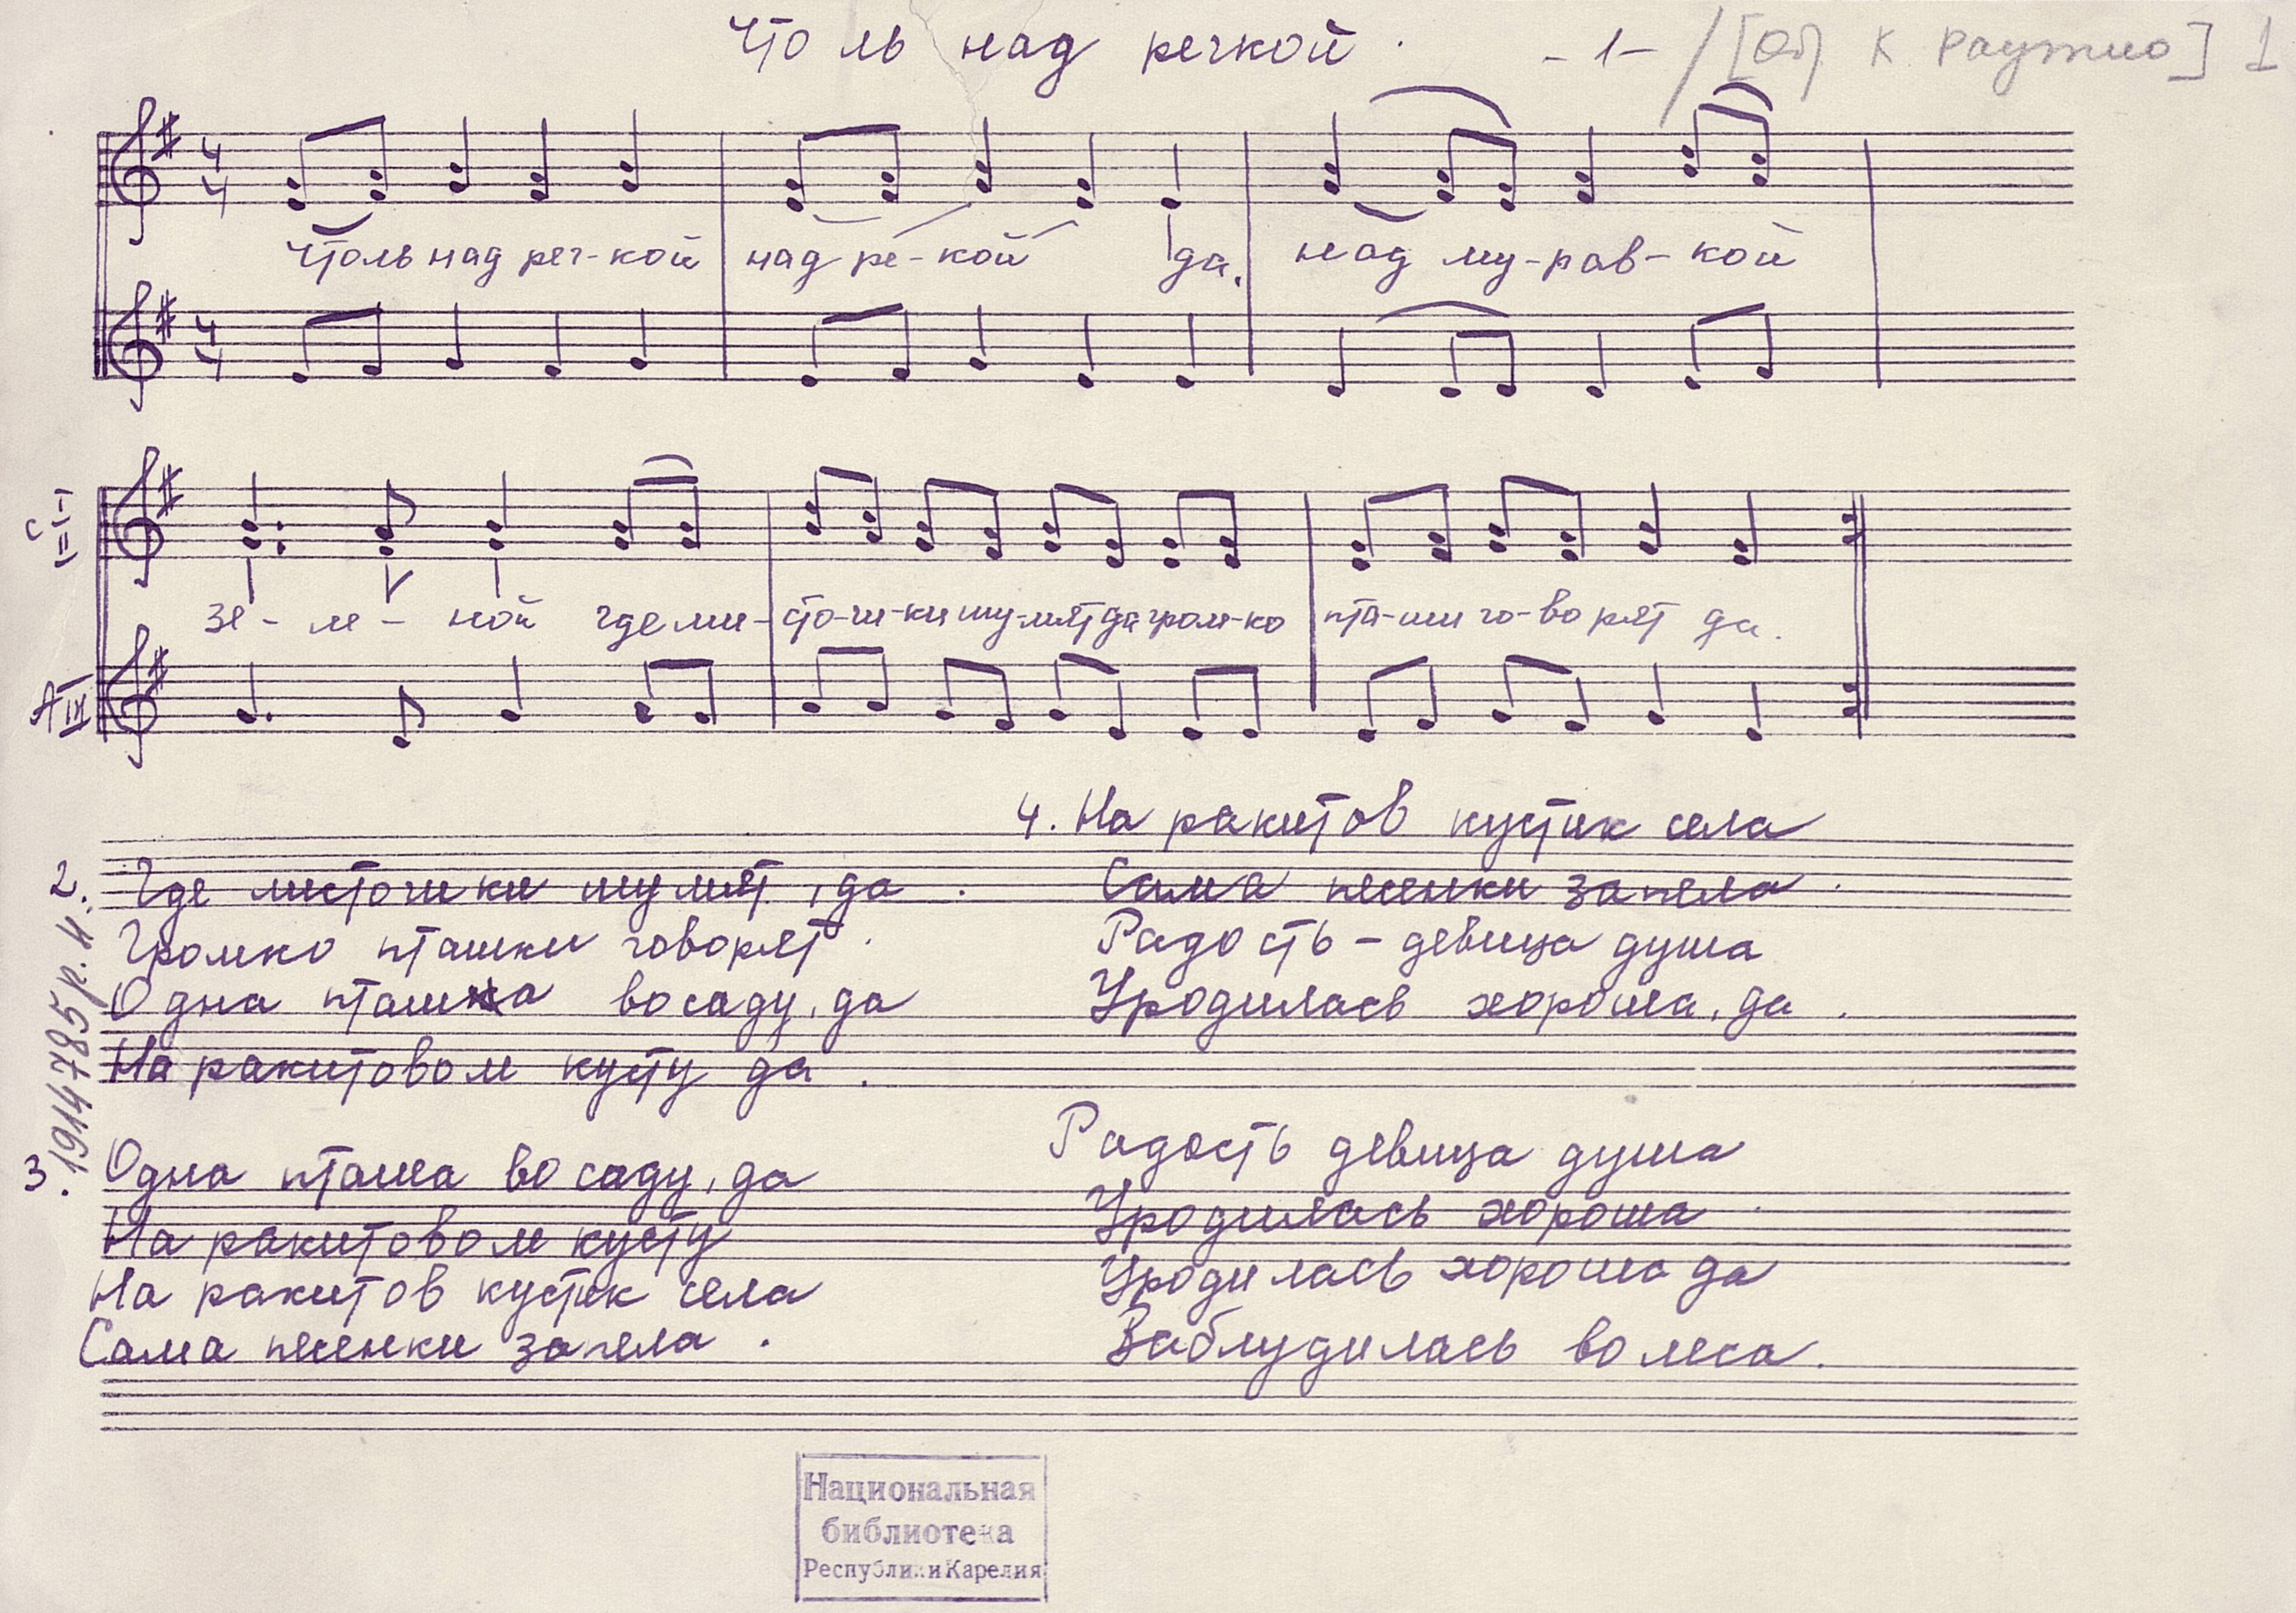 Что ль над речкой. -1- / [Об К Раутио] 1
4 4
Что ль над реч-кой над ре-кой да. над му-рав-кой
4 4
С I II
зе-ле-ной где ли-сто-чи-ки шу-мят да гром-ко пта-ши го-во рят да.
А III
2. Где листочики шумят, да.
Громко пташки говорят.
Одна пташка во саду, да
На ракитовом кусту да.
3. Одна пташа во саду, да
На ракитовом кусту
На ракитов кустик села
Сама песенки запела.
4. На ракитов кустик села
Сама песенки запела.
Радость - девица душа
Уродилась хороша, да.
Радость девица душа
Уродилась хороша.
Уродилась хороша да
Заблудилась во леса.
1914785 р. н.
Национальная
библиотека
Республики Карелия